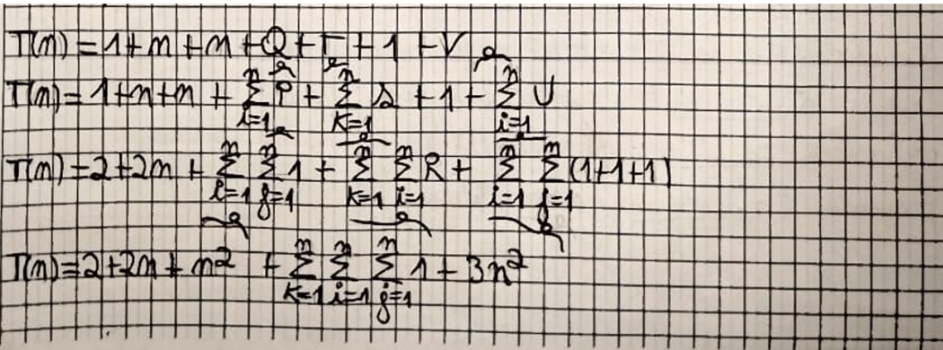 T(n) = 1 + n + n + Q + T + 1 + V
T(n) = 1 + n + n + \sum_{i=1}^{n} P + \sum_{k=1}^{n} S + 1 + \sum_{i=1}^{n} U
T(n) = 2 + 2n + \sum_{i=1}^{n} \sum_{j=1}^{n} 1 + \sum_{k=1}^{n} \sum_{i=1}^{n} R + \sum_{i=1}^{n} \sum_{j=1}^{n} (1+1+1)
T(n) = 2 + 2n + n^2 + \sum_{k=1}^{n} \sum_{i=1}^{n} \sum_{j=1}^{n} 1 + 3n^2